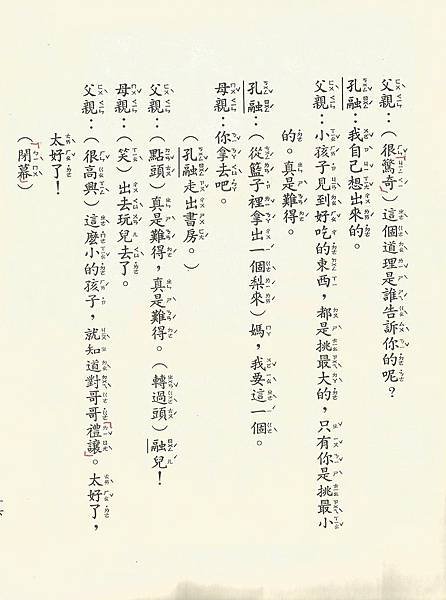 父親：（很驚奇）這個道理是誰告訴你的呢？
孔融：我自己想出來的。
父親：小孩子見到好吃的東西，都是挑最大的，只有你是挑最小
的。真是難得。
孔融：（從籃子裡拿出一個梨來）媽，我要這一個。
母親：你拿去吧。
（孔融走出書房。）
父親：（點頭）真是難得，真是難得。（轉過頭）融兒！
母親：（笑）出去玩兒去了。
父親：（很高興）這麼小的孩子，就知道對哥哥禮讓。太好了，
太好了！
（閉幕）